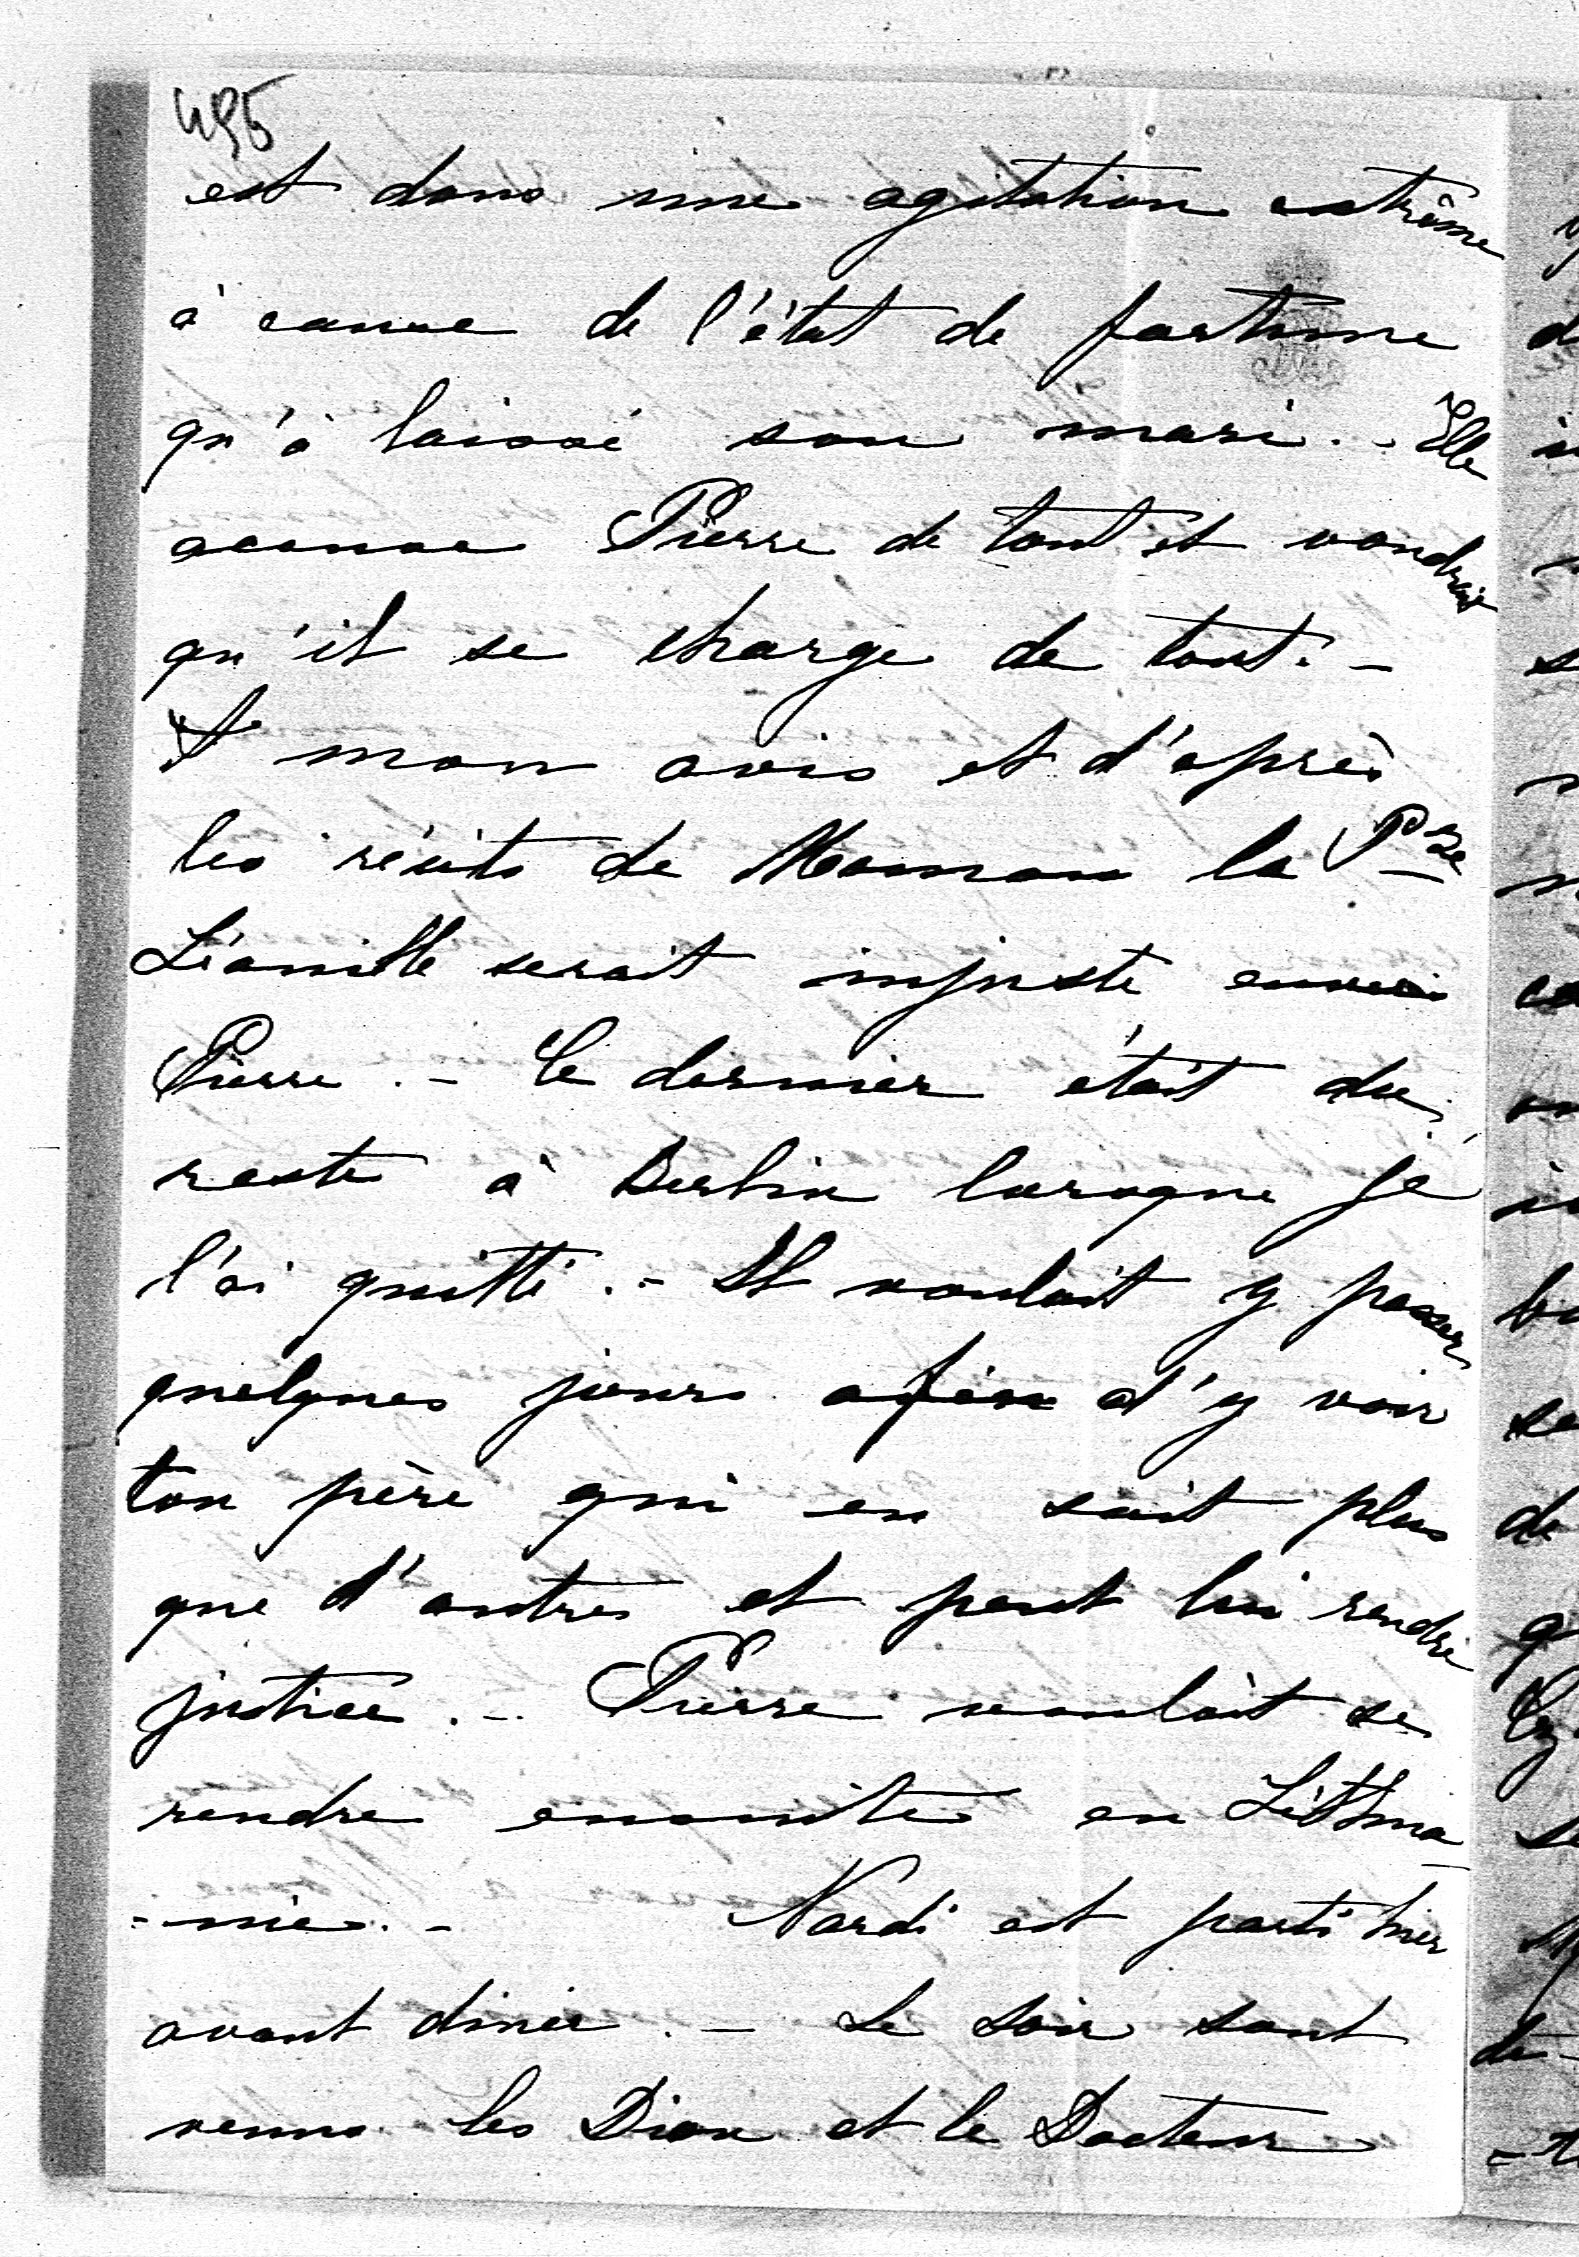 495
est dans une agitation extrême
à cause de l'état de fortune
qu'à laissé son mari. - Elle
accuse Pierre de tout et voudrait
qu'il se charge de tout. -
A mon avis et d'après
les récits de Maman la Psse
Léonille serait injuste envers
Pierre. - Ce dernier était du
reste à Berlin lorsque je
l'ai quitté. - Il voulait y passer
quelques jours afin d'y voir
ton père qui en sait plus
que d'autres et peut lui rendre
justice. - Pierre voulait se
rendre ensuite en Lithua-
-nie. - Nardi est parti hier
avant diner. - Le soir sont
venus les Dion et le Docteur